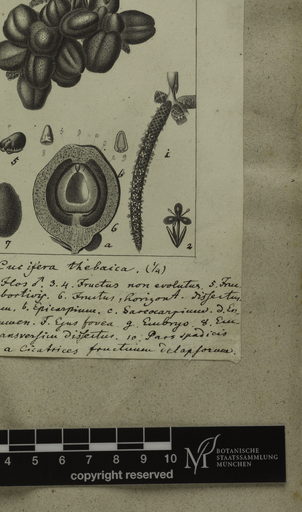 5
a
b
6
7
a
i
2
Cucifera thebaica. (1/4)
Flos ♂. 3. 4. Fructus non evolutus. 5. Fruc
abortivus. 6. Fructus, horizont. dissectus
b. Epicarpium, c. Sarcocarpium. d. En
f. Ejus fovea g. Embryo. 8.
transversim dissectus. 10. Pars spadicis
a Cicatrices fructuum delapsorum.
4 5 6 7 8 9 10
copyright reserved
BOTANISCHE
STAATSSAMMLUNG
MÜNCHEN